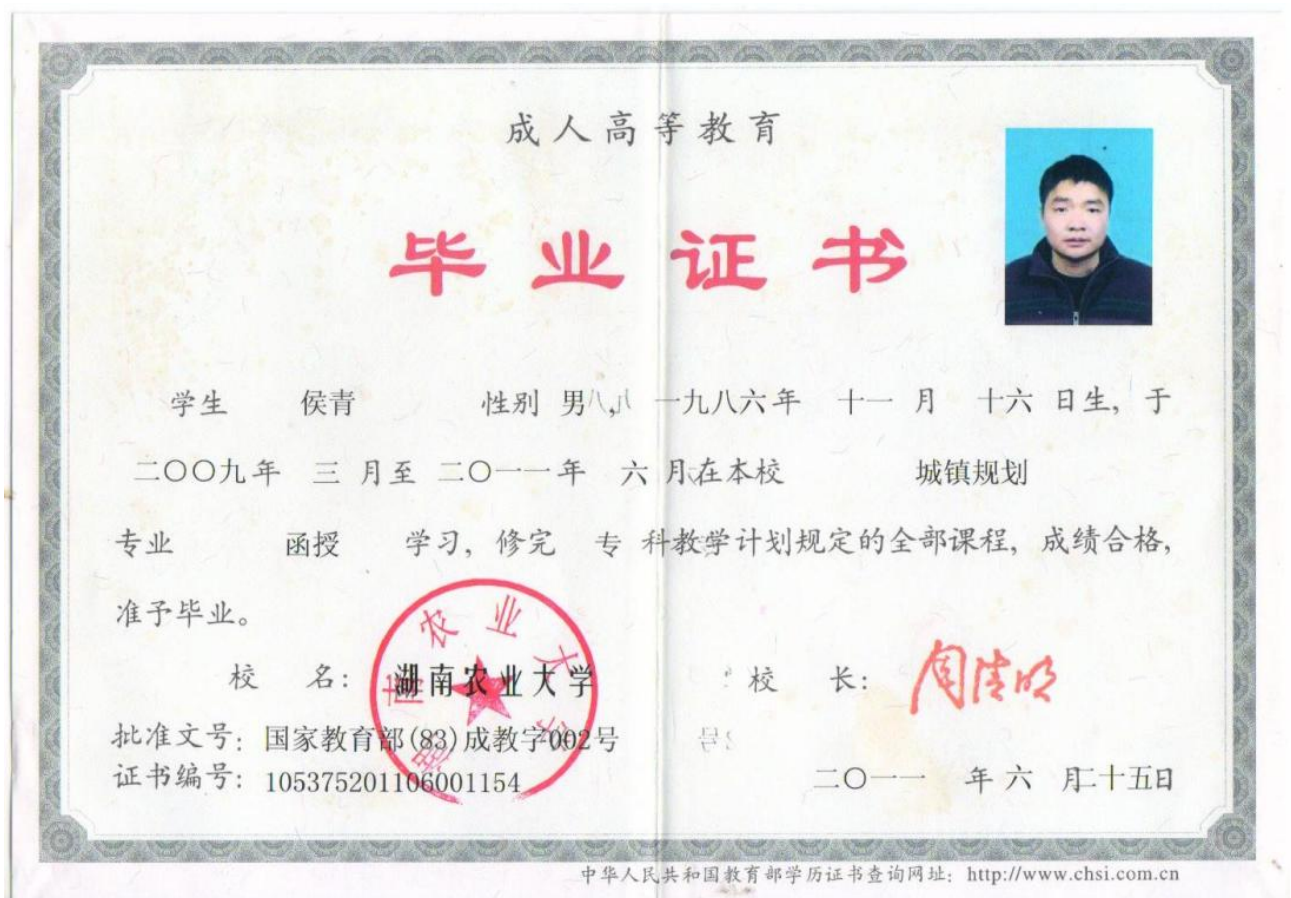 成人高等教育
毕业证书
学生 侯青 性别 男, 一九八六年 十一 月 十六 日生, 于
二〇〇九年 三 月至 二〇一一年 六 月在本校 城镇规划
专业 函授 学习, 修完 专 科教学计划规定的全部课程, 成绩合格,
准予毕业。
校 名: 湖南农业大学 校 长: 周清明
湖南农业大学
批准文号: 国家教育部(83)成教字002号
证书编号: 105375201106001154 二〇一一 年 六 月二十五日
中华人民共和国教育部学历证书查询网址: http://www.chsi.com.cn